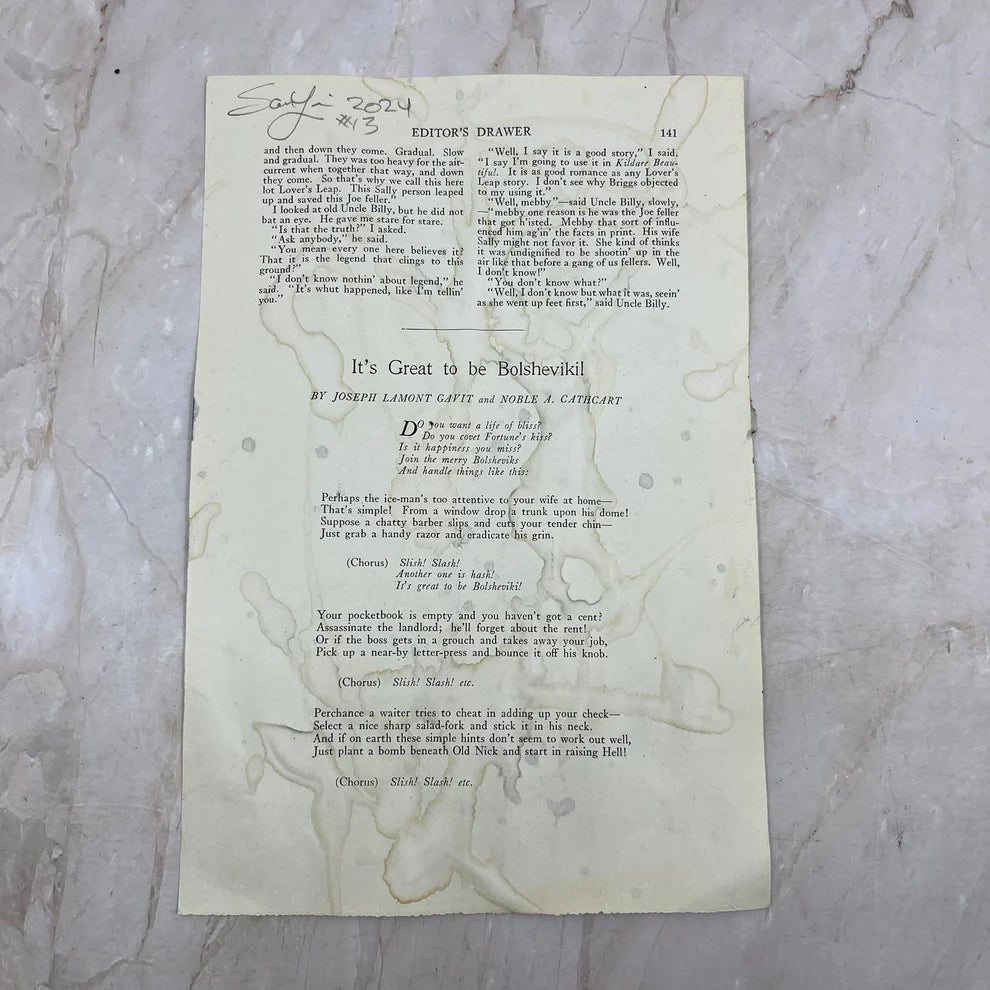 2024
#13
EDITOR'S DRAWER 141
and then down they come. Gradual. Slow
and gradual. They was too heavy for the air-
current when together that way, and down
they come. So that's why we call this here
lot Lover's Leap. This Sally person leaped
up and saved this Joe feller."
I looked at old Uncle Billy, but he did not
bat an eye. He gave me stare for stare.
"Is that the truth?" I asked.
"Ask anybody," he said.
"You mean every one here believes it?
That it is the legend that clings to this
ground?"
"I don't know nothin' about legend," he
said. "It's whut happened, like I'm tellin'
you."
"Well, I say it is a good story," I said.
"I say I'm going to use it in Kildare Beau-
tiful. It is as good romance as any Lover's
Leap story. I don't see why Briggs objected
to my using it."
"Well, mebby"—said Uncle Billy, slowly,
—"mebby one reason is he was the Joe feller
that got h'isted. Mebby that sort of influ-
enced him ag'in' the facts in print. His wife
Sally might not favor it. She kind of thinks
it was undignified to be shootin' up in the
air like that before a gang of us fellers. Well,
I don't know!"
"You don't know what?"
"Well, I don't know but what it was, seein'
as she went up feet first," said Uncle Billy.
It's Great to be Bolsheviki!
BY JOSEPH LAMONT GAVIT and NOBLE A. CATHCART
DO you want a life of bliss?
Do you covet Fortune's kiss?
Is it happiness you miss?
Join the merry Bolsheviks
And handle things like this:
Perhaps the ice-man's too attentive to your wife at home—
That's simple! From a window drop a trunk upon his dome!
Suppose a chatty barber slips and cuts your tender chin—
Just grab a handy razor and eradicate his grin.
(Chorus) Slish! Slash!
Another one is hash!
It's great to be Bolsheviki!
Your pocketbook is empty and you haven't got a cent?
Assassinate the landlord; he'll forget about the rent!
Or if the boss gets in a grouch and takes away your job,
Pick up a near-by letter-press and bounce it off his knob.
(Chorus) Slish! Slash! etc.
Perchance a waiter tries to cheat in adding up your check—
Select a nice sharp salad-fork and stick it in his neck.
And if on earth these simple hints don't seem to work out well,
Just plant a bomb beneath Old Nick and start in raising Hell!
(Chorus) Slish! Slash! etc.